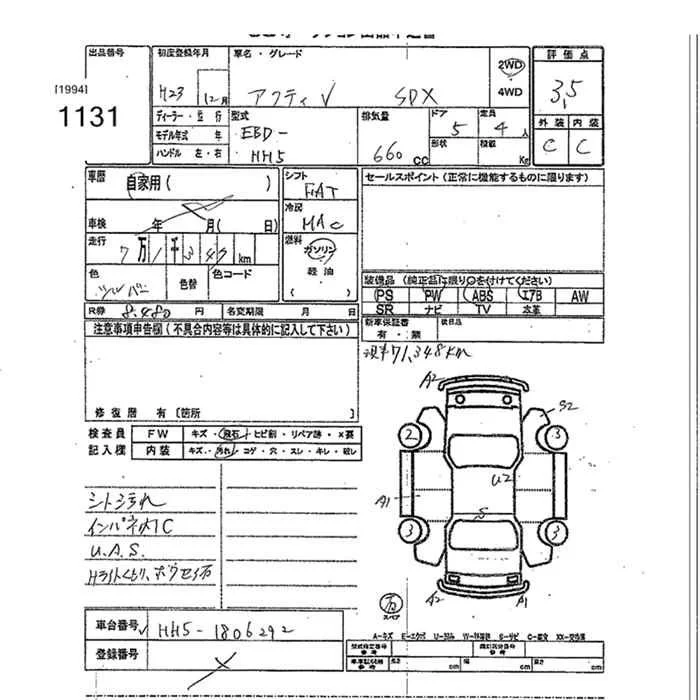 出品番号
[1994]
1131
初度登録年月
H23 12月
車名・グレード
アクティV SDX
2WD
4WD
評価点
3,5
外装 内装
C C
ディーラー・並行
モデル年式 年
ハンドル 左・右
型式
EBD-
HH5
排気量
660 CC
ドア
5
形状
定員
4人
積載
Kg
車歴
自家用( )
車検 年 月( 日)
走行
7万1千347km
色
色替
色コード
シフト
FAT
冷房
MAC
燃料
ガソリン
軽油
セールスポイント(正常に機能するものに限ります)
装備品 (純正品に限り○を付けてください)
PS PW ABS エアB AW
SR ナビ TV 本革
新車保証書
有・無
後日品
R券 8,480 円
名変期限 月 日
注意事項申告欄(不具合内容等は具体的に記入して下さい)
71,348km
修復歴 有(箇所
検査員
記入欄
FW キズ・飛石・ヒビ割・リペア跡・X要
内装 キズ・汚れ・コゲ・穴・スレ・キレ・欠レ
シート汚れ
U.A.S.
A2
S2
2
3
U2
A1
S
3
3
A2
A1
スペア
A-キズ E-エクボ U-凹み S-サビ C-腐食 XX-交換済
車台番号
HH5-1806292
登録番号
型式指定番号
類別区分番号
長さ cm 幅 cm 高さ cm